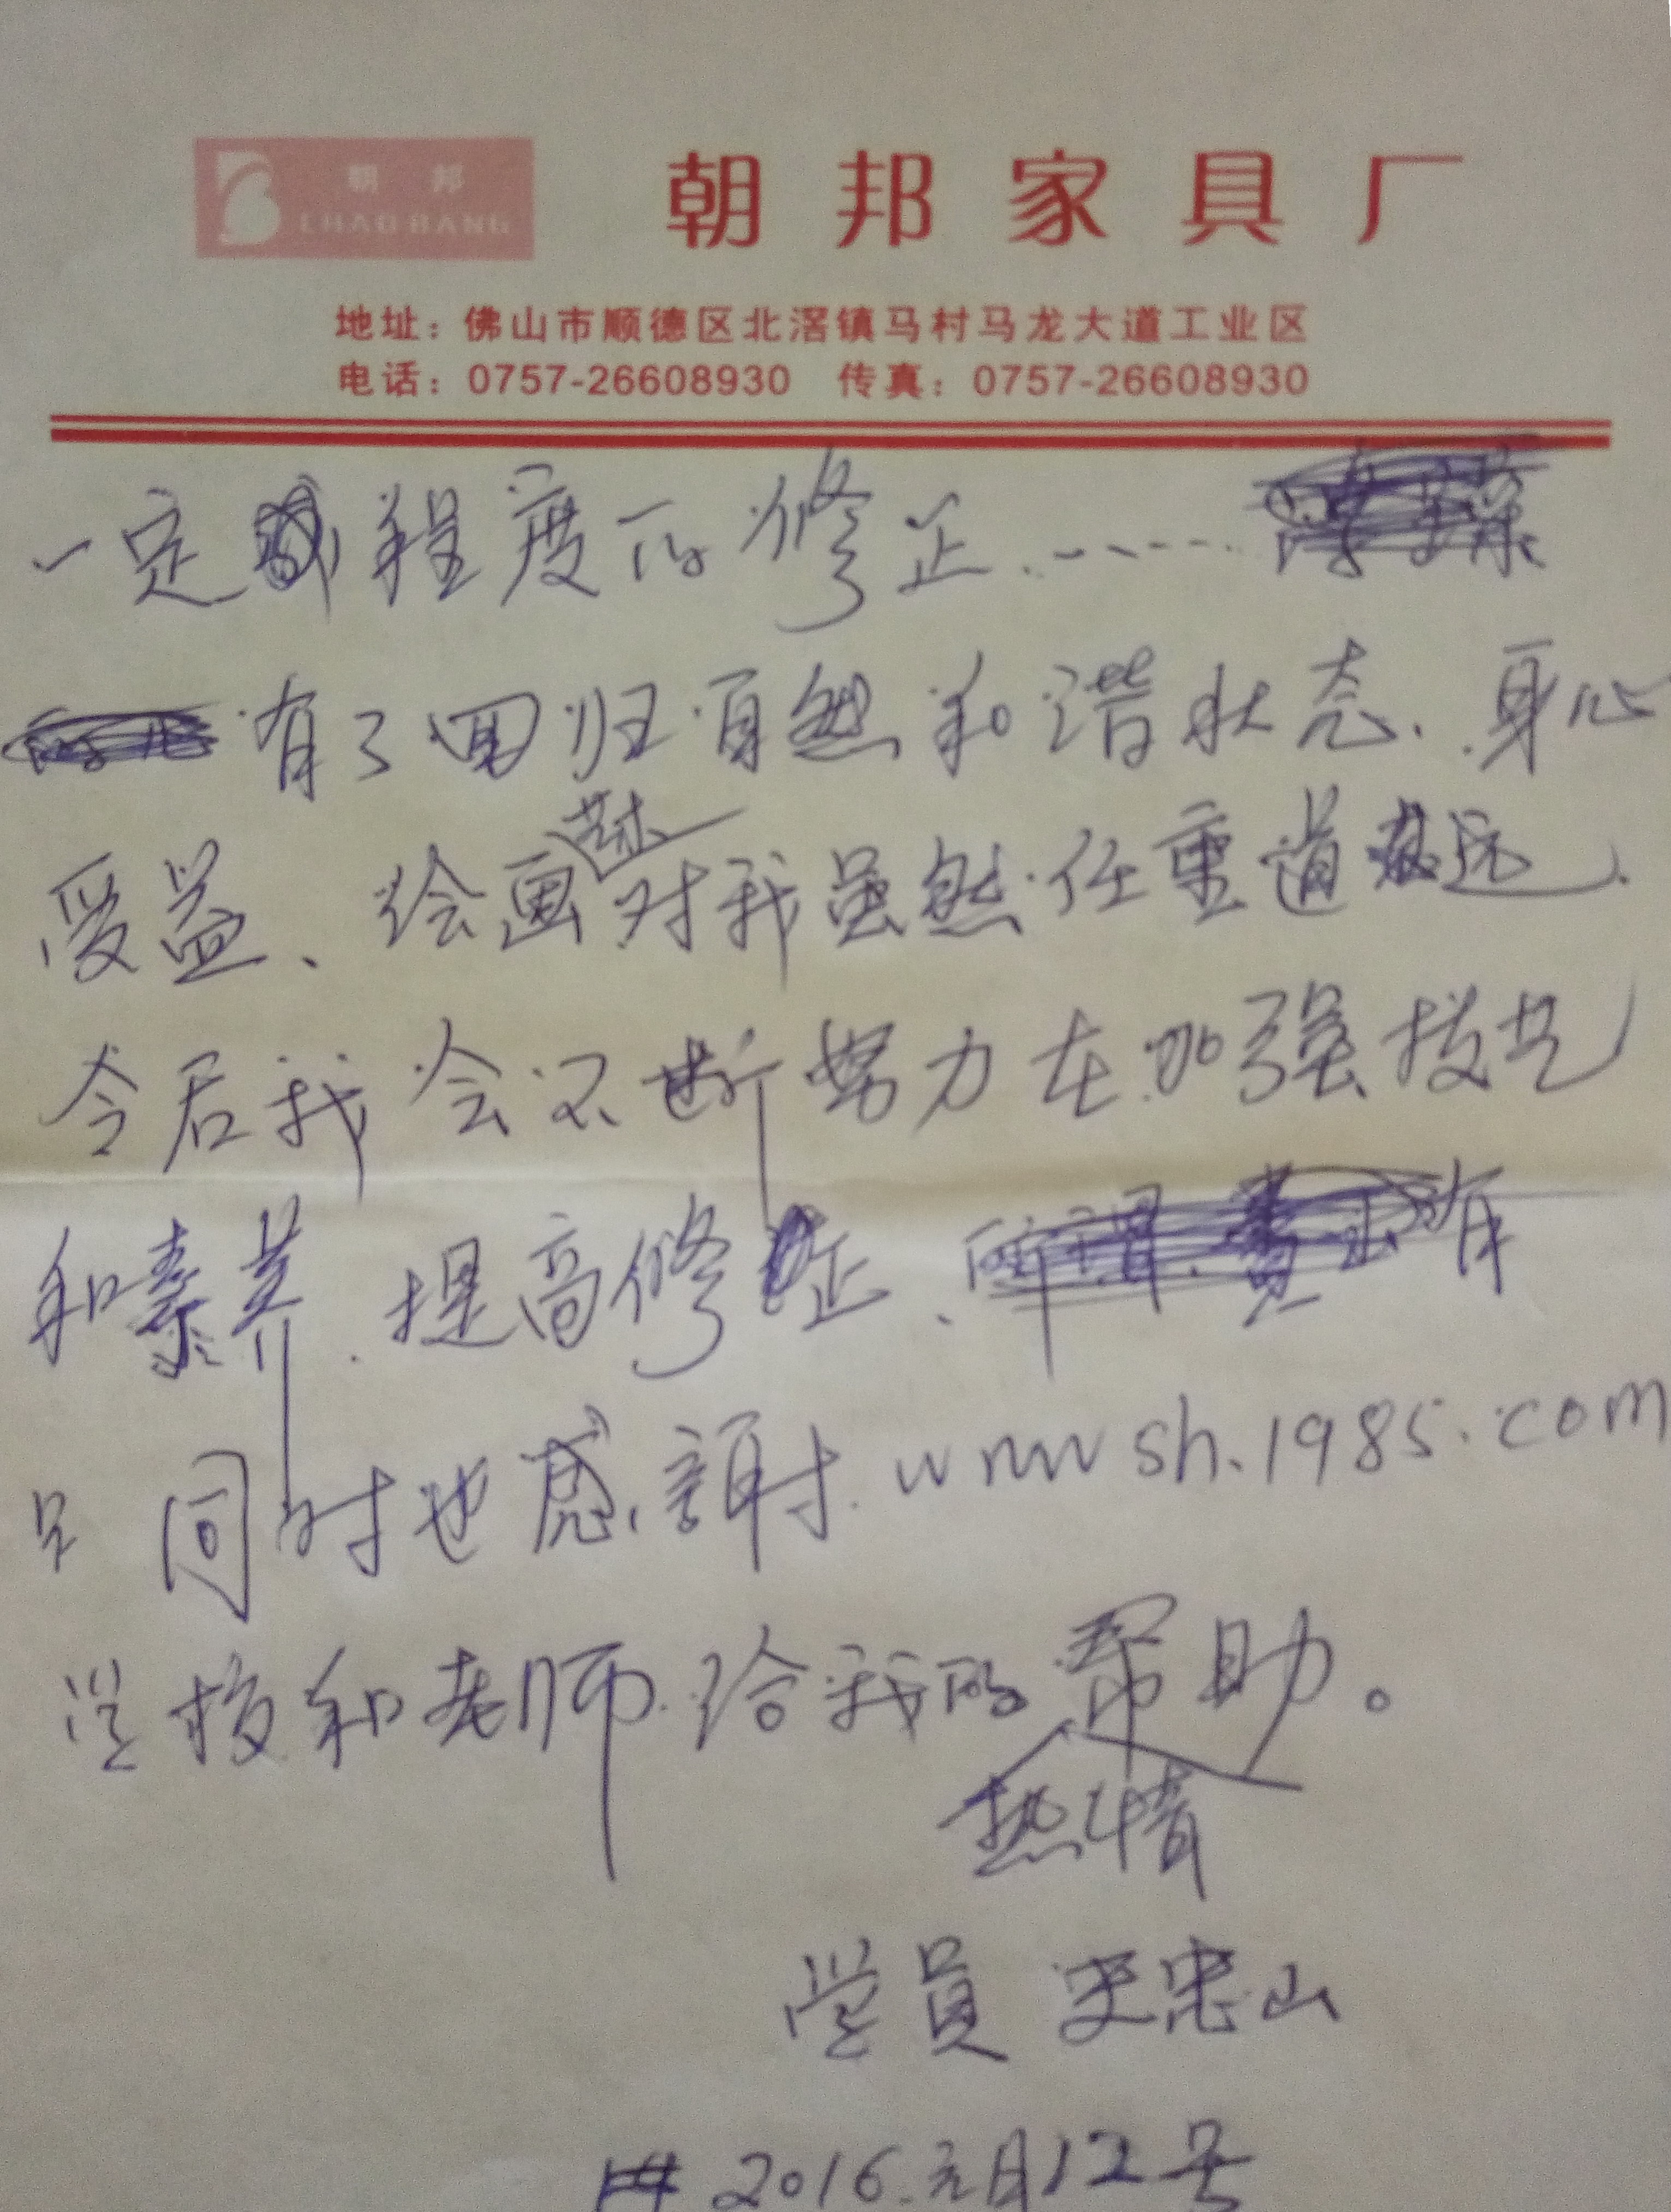 朝邦
CHAOBANG
朝邦家具厂
地址：佛山市顺德区北滘镇马村马龙大道工业区
电话：0757-26608930 传真：0757-26608930
一定程度的修正……
有了回归自然和谐状态.身心
受益、绘画艺术对我虽然任重道远.
今后我会不断努力在加强技艺
和素养.提高修正、有
同时也感謝.www sh.1985.com
学校和老师给我的热情帮助。
学员 史忠山
2016.元月12号